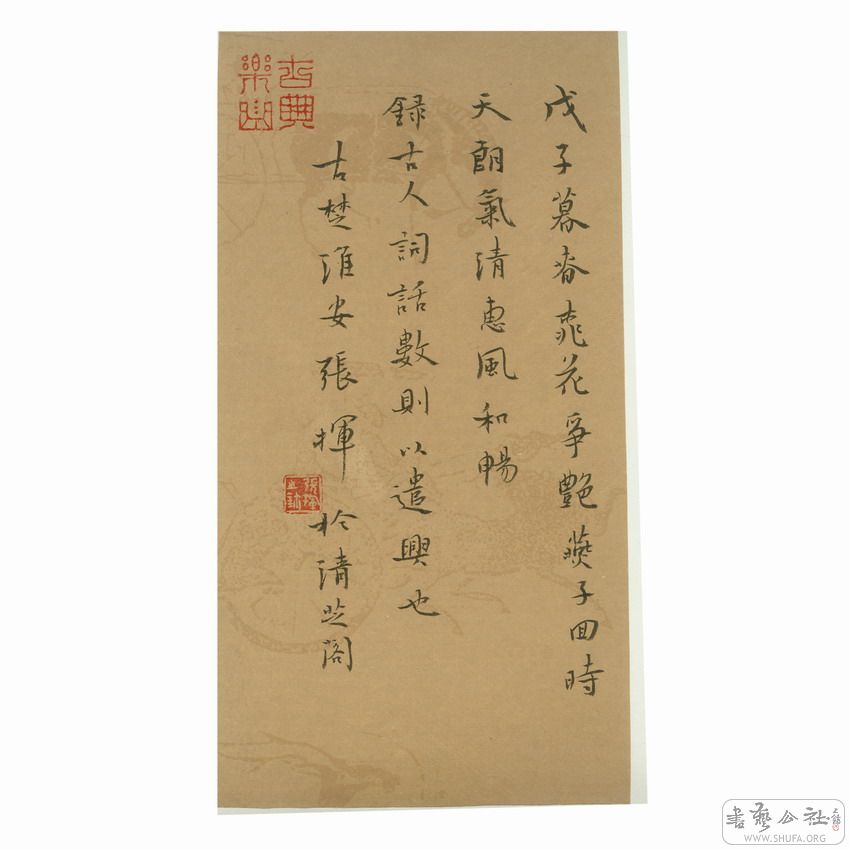 戊子暮春桃花爭艷燕子回時
天朗氣清惠風和暢
錄古人詞話數則以遣興也
古楚淮安張揮於清芝閣
書藝公社
WWW.SHUFA.ORG